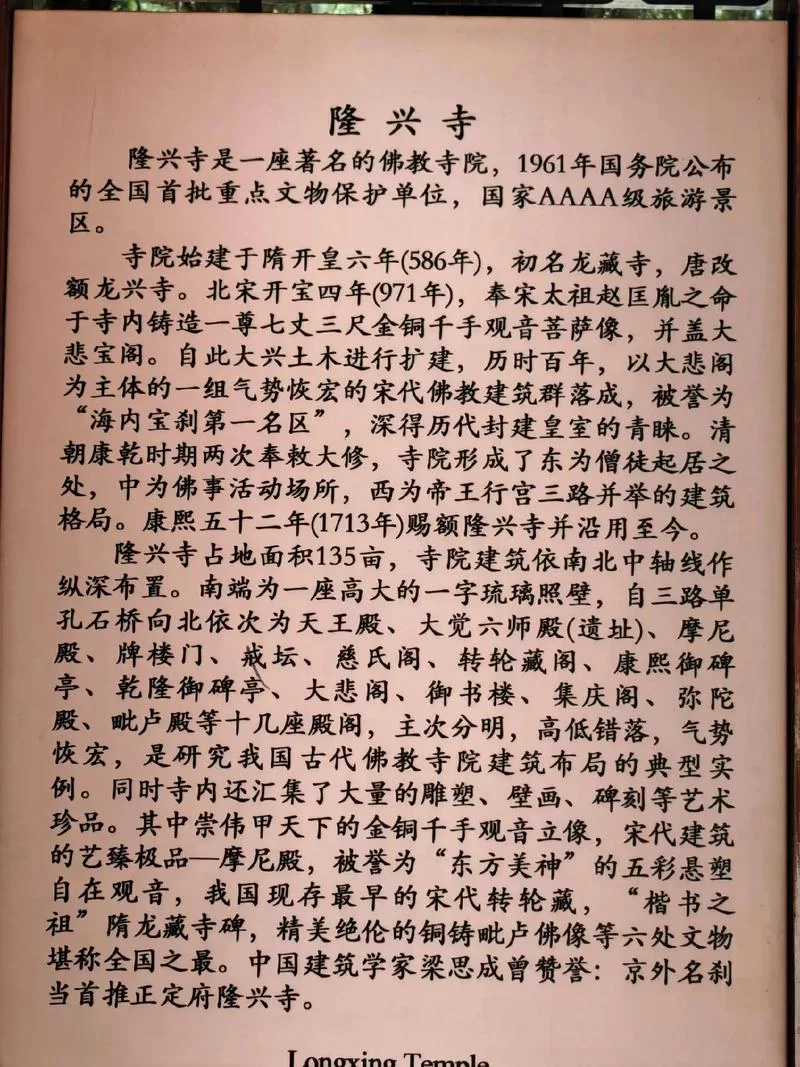 隆兴寺
隆兴寺是一座著名的佛教寺院，1961年国务院公布
的全国首批重点文物保护单位，国家AAAA级旅游景
区。
寺院始建于隋开皇六年(586年)，初名龙藏寺，唐改
额龙兴寺。北宋开宝四年(971年)，奉宋太祖赵匡胤之命
于寺内铸造一尊七丈三尺金铜千手观音菩萨像，并盖大
悲宝阁。自此大兴土木进行扩建，历时百年，以大悲阁
为主体的一组气势恢宏的宋代佛教建筑群落成，被誉为
“海内宝刹第一名区”，深得历代封建皇室的青睐。清
朝康乾时期两次奉敕大修，寺院形成了东为僧徒起居之
处，中为佛事活动场所，西为帝王行宫三路并举的建筑
格局。康熙五十二年(1713年)赐额隆兴寺并沿用至今。
隆兴寺占地面积135亩，寺院建筑依南北中轴线作
纵深布置。南端为一座高大的一字琉璃照壁，自三路单
孔石桥向北依次为天王殿、大觉六师殿(遗址)、摩尼
殿、牌楼门、戒坛、慈氏阁、转轮藏阁、康熙御碑
亭、乾隆御碑亭、大悲阁、御书楼、集庆阁、弥陀
殿、毗卢殿等十几座殿阁，主次分明，高低错落，气势
恢宏，是研究我国古代佛教寺院建筑布局的典型实
例。同时寺内还汇集了大量的雕塑、壁画、碑刻等艺术
珍品。其中崇伟甲天下的金铜千手观音立像，宋代建筑
的艺臻极品—摩尼殿，被誉为“东方美神”的五彩悬塑
自在观音，我国现存最早的宋代转轮藏，“楷书之
祖”隋龙藏寺碑，精美绝伦的铜铸毗卢佛像等六处文物
堪称全国之最。中国建筑学家梁思成曾赞誉：京外名刹
当首推正定府隆兴寺。
Longxing Temple